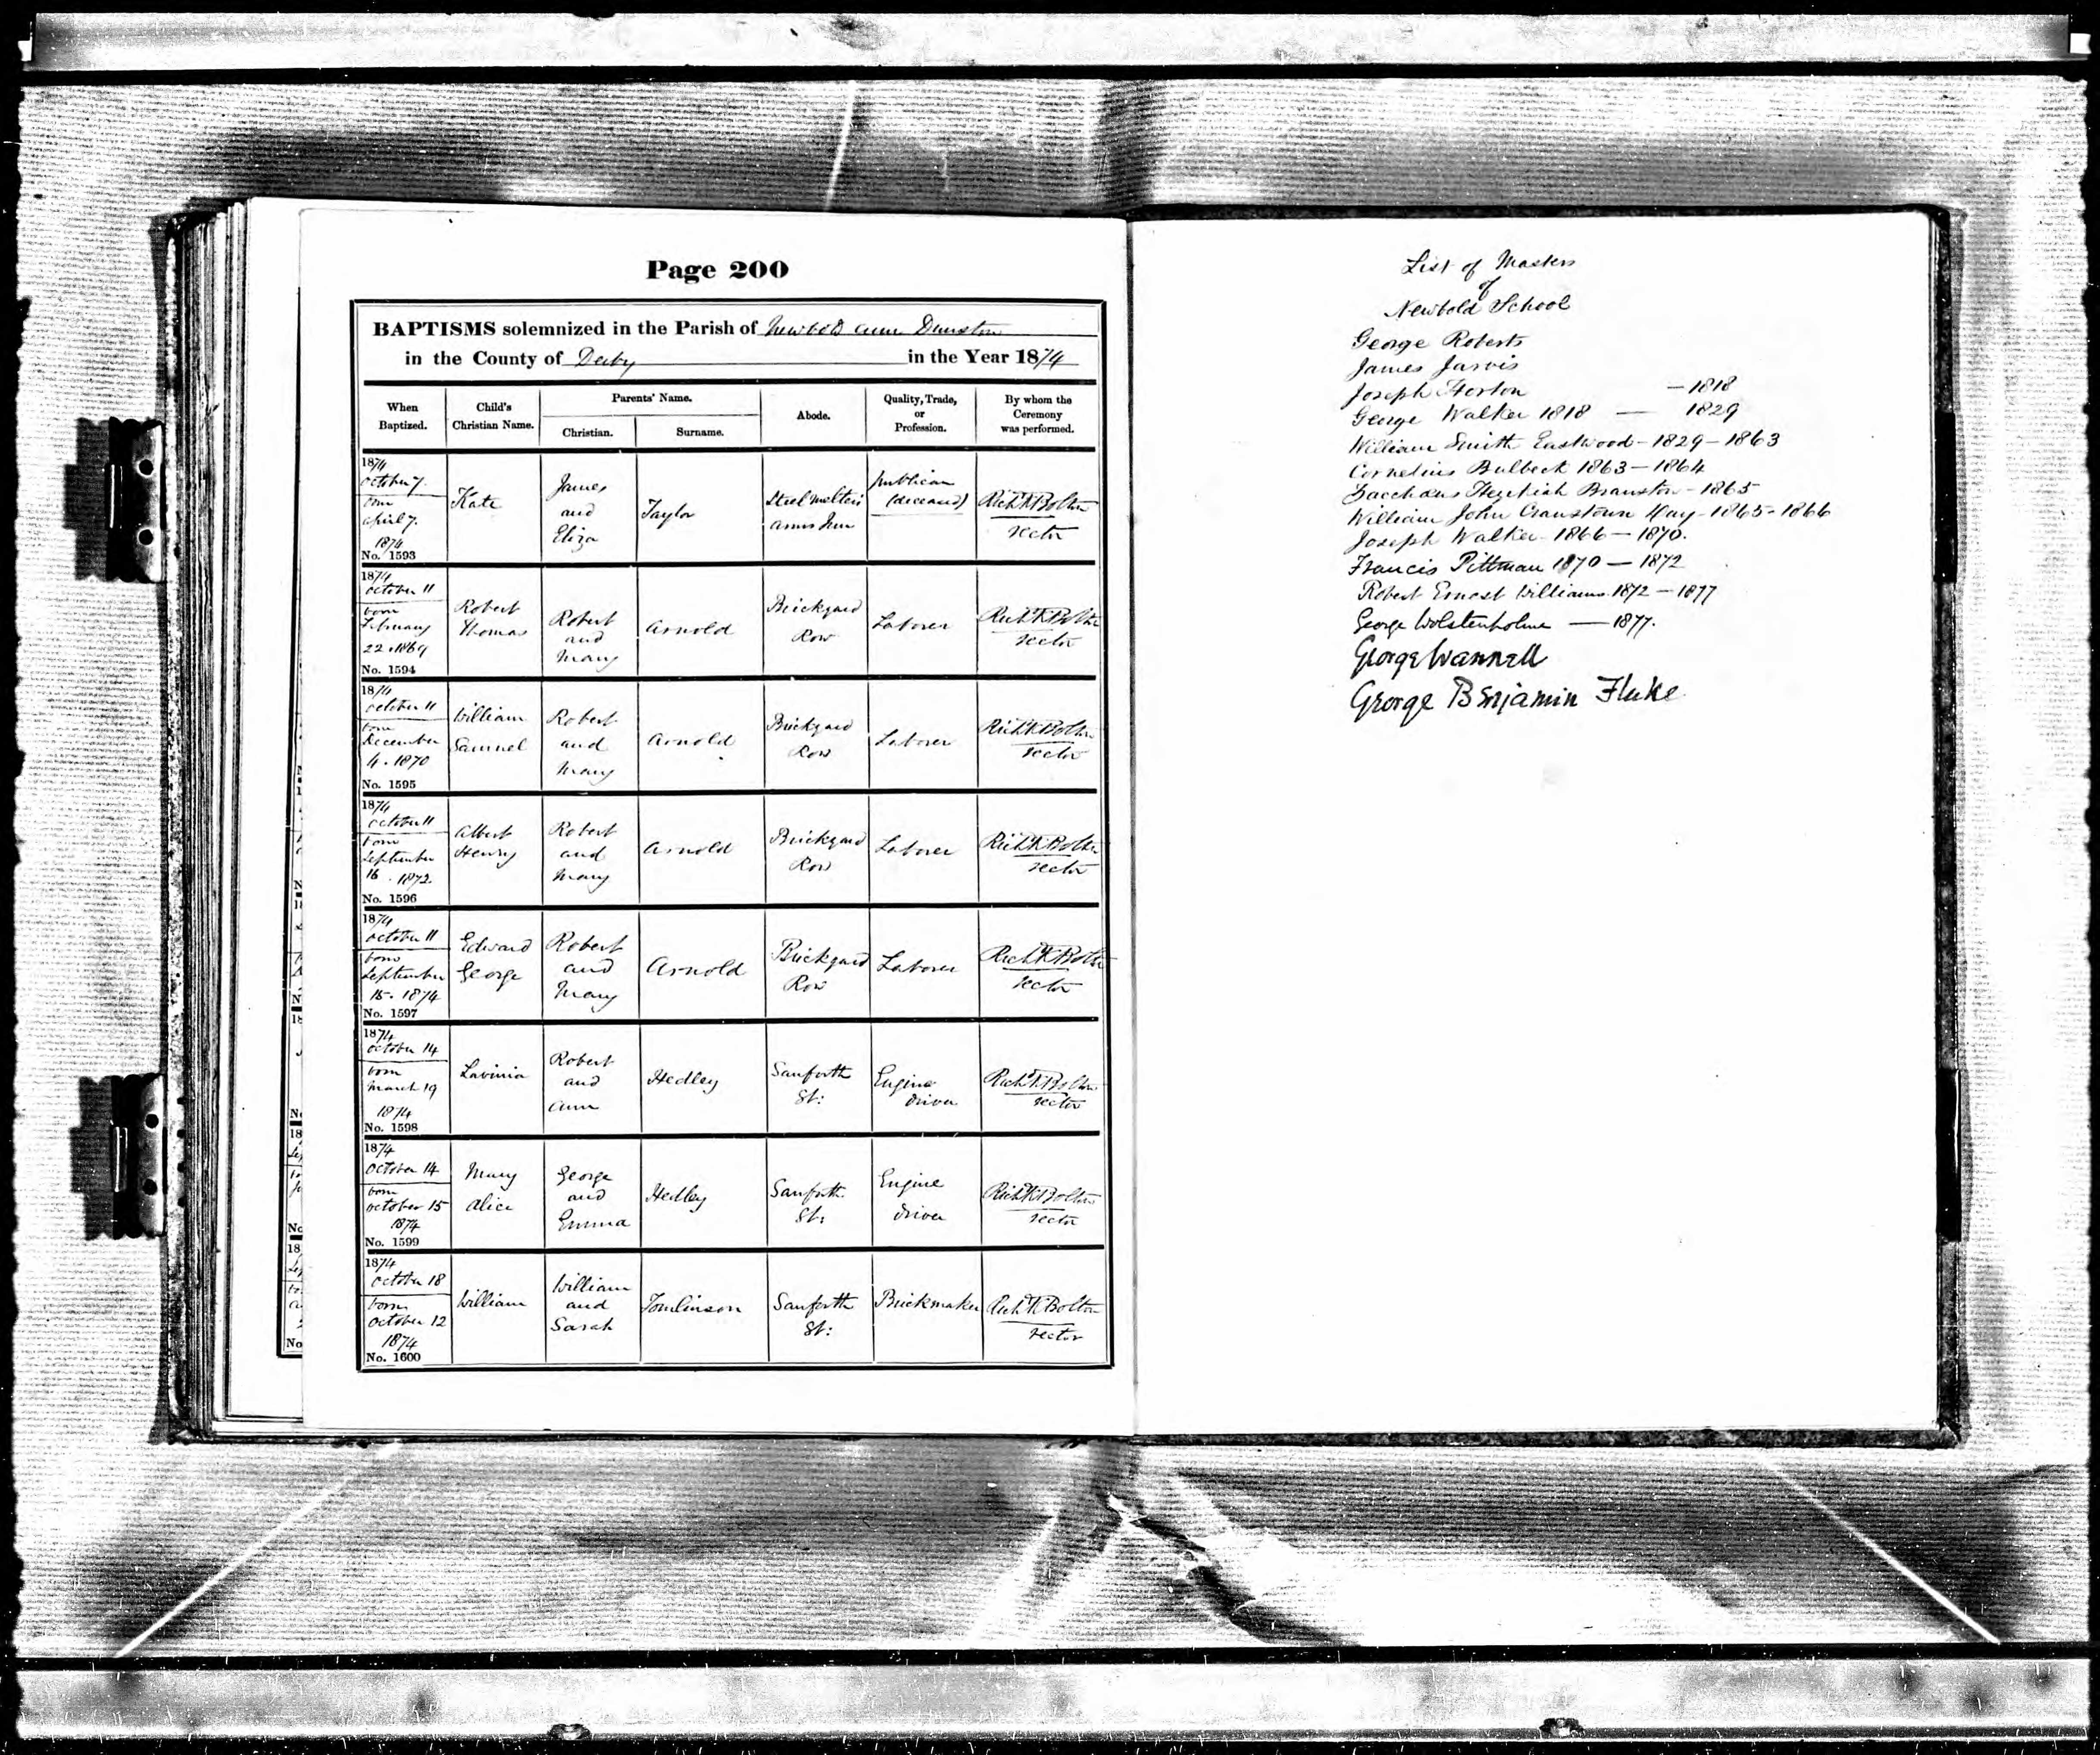 Page 200
BAPTISMS solemnized in the Parish of Newbold cum Dunston
in the County of Derby in the Year 1874
When Baptized.
Child's Christian Name.
Parents' Name.
Christian.
Surname.
Abode.
Quality, Trade, or Profession.
By whom the Ceremony was performed.
1874
October 7.
born
April 7.
1874
No. 1593
Kate
James
and
Eliza
Taylor
Steel Melters
Arms Inn
publican
(deceased)
Rich K Bolton
rector
1874
October 11
born
February
22. 1869
No. 1594
Robert
Thomas
Robert
and
Mary
Arnold
Brickyard
Row
Laborer
Rich K Bolton
rector
1874
October 11
born
December
4. 1870
No. 1595
William
Samuel
Robert
and
Mary
Arnold
Brickyard
Row
Laborer
Rich K Bolton
rector
1874
October 11
born
September
16. 1872.
No. 1596
Albert
Henry
Robert
and
Mary
Arnold
Brickyard
Row
Laborer
Rich K Bolton
rector
1874
October 11
born
September
15. 1874
No. 1597
Edward
George
Robert
and
Mary
Arnold
Brickyard
Row
Laborer
Rich K Bolton
rector
1874
October 14
born
March 19
1874
No. 1598
Lavinia
Robert
and
Ann
Hedley
Sanforth
St:
Engine
driver
Rich K Bolton
rector
1874
October 14
born
October 15
1874
No. 1599
Mary
Alice
George
and
Emma
Hedley
Sanforth
St:
Engine
driver
Rich K Bolton
rector
1874
October 18
born
October 12
1874
No. 1600
William
William
and
Sarah
Tomlinson
Sanforth
St:
Brickmaker
Rich K Bolton
rector
List of Masters
of
Newbold School
George Roberts
James Jarvis
Joseph Horton — 1818
George Walker 1818 — 1829
William Smith Eastwood - 1829 - 1863
Cornelius Bulbeck 1863 - 1864
Zacchaeus Hezekiah Branston - 1865
William John Cranstoun Hay - 1865 - 1866
Joseph Walker - 1866 - 1870.
Francis Pittman 1870 — 1872
Robert Ernest Williams. 1872 - 1877
George Wolstenholme — 1877.
George Wannell
George Benjamin Fluke